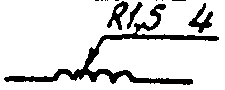 R1,5 4